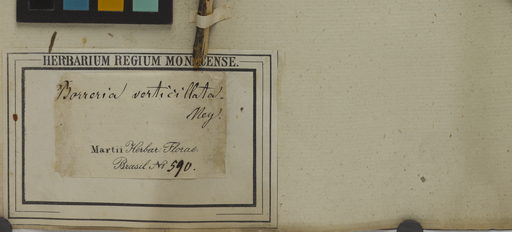 HERBARIUM REGIUM MONACENSE.
Borreria verticillata
Mey.
Martii Herbar. Florae
Brasil No 590.